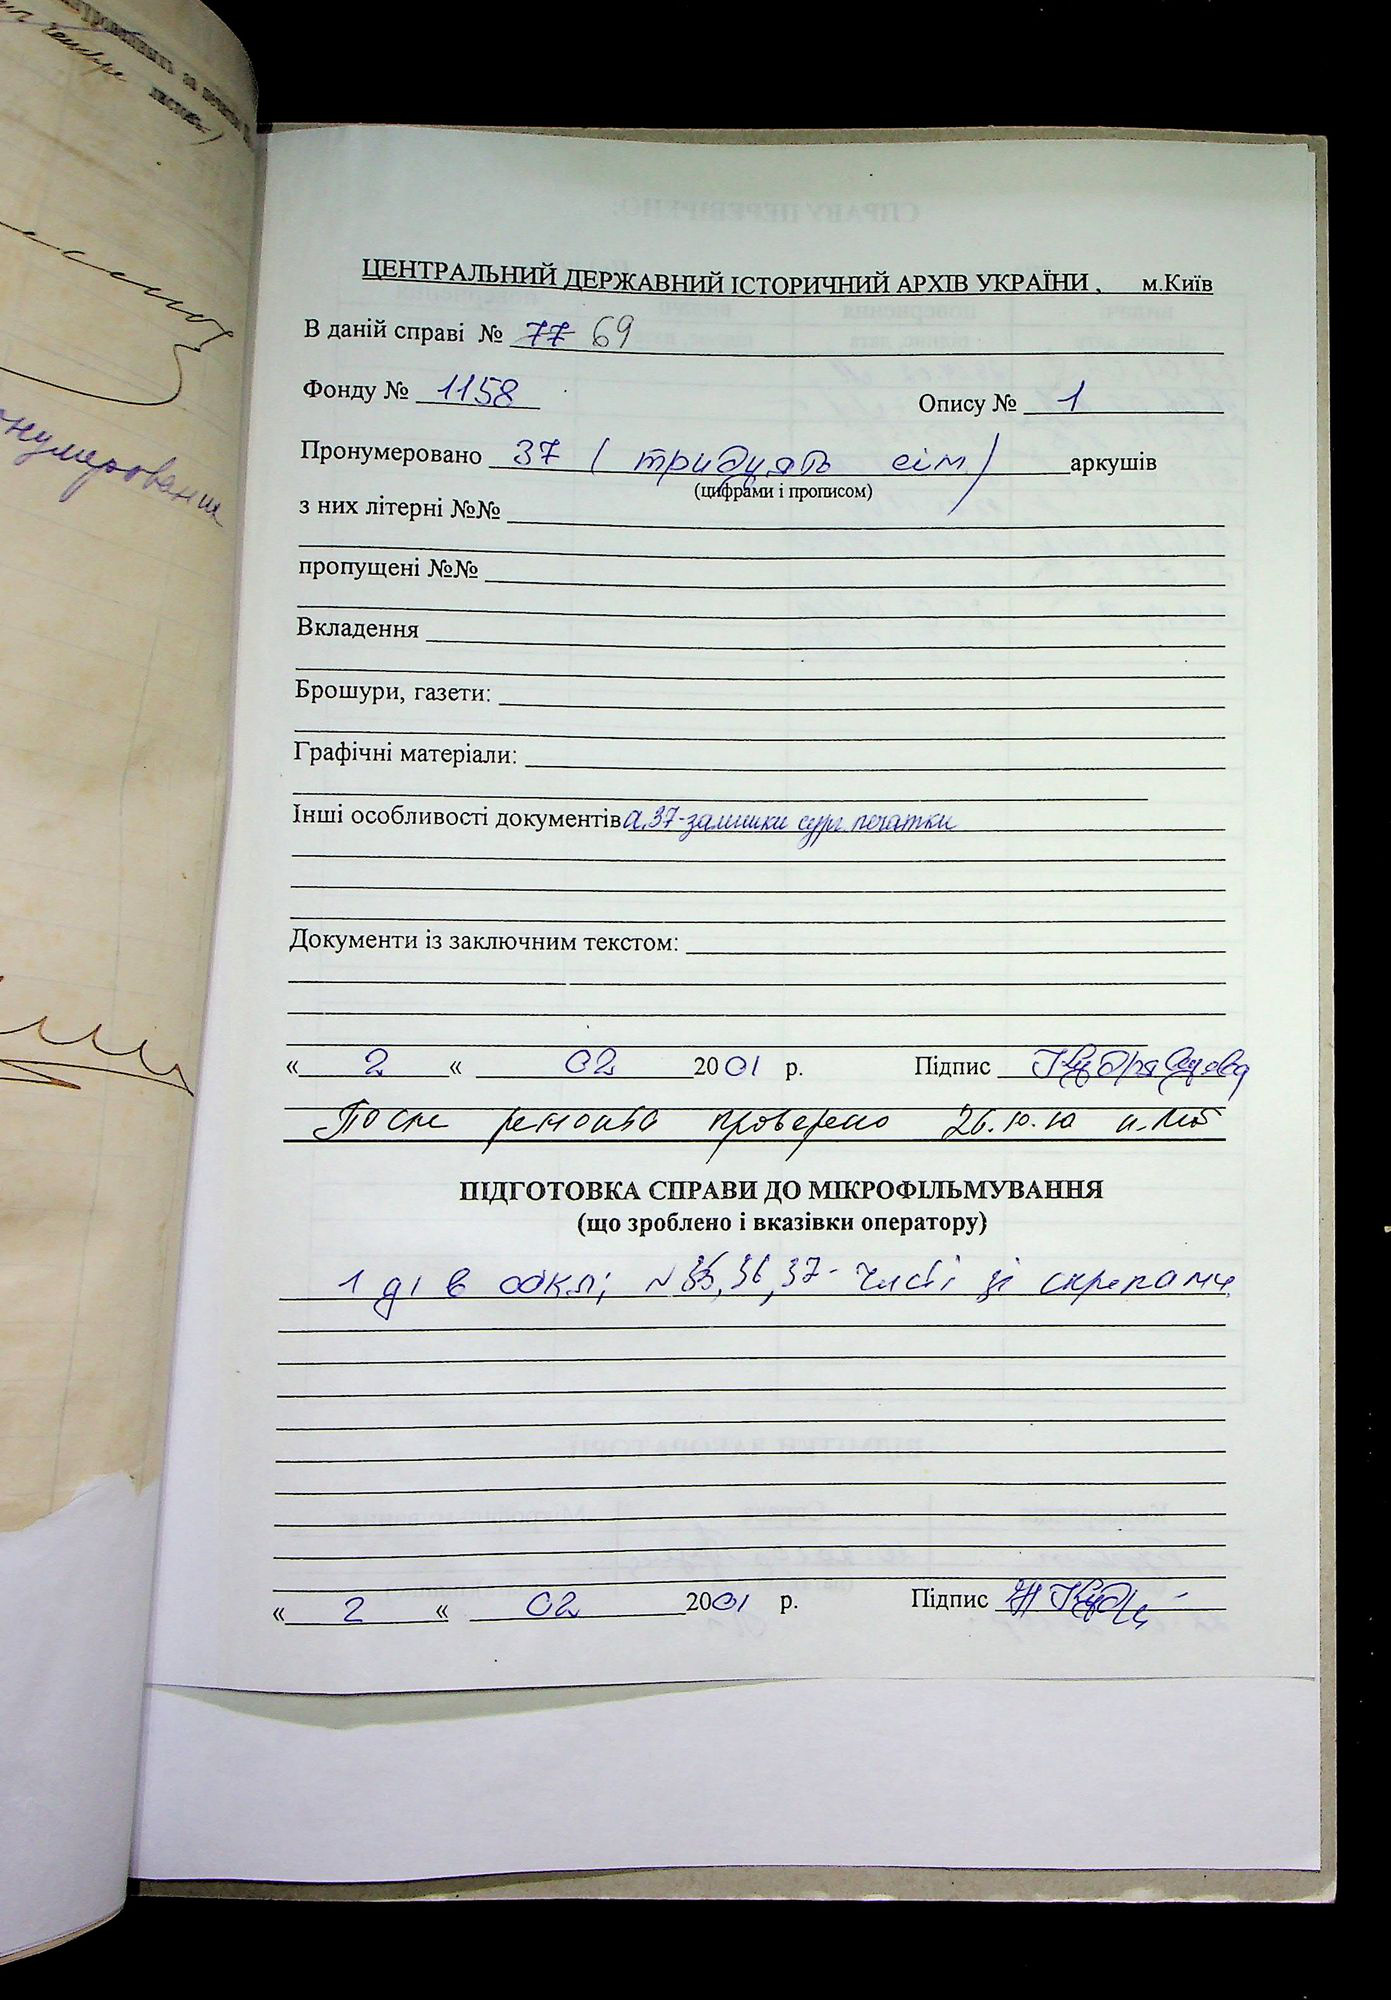 ЦЕНТРАЛЬНИЙ ДЕРЖАВНИЙ ІСТОРИЧНИЙ АРХІВ УКРАЇНИ , м.Київ
В даній справі № 77 69
Фонду № 1158 Опису № 1
Пронумеровано 37 ( тридцять сім ) аркушів
(цифрами і прописом)
з них літерні №№
пропущені №№
Вкладення
Брошури, газети:
Графічні матеріали:
Інші особливості документів а.37-залишки сург. печатки
Документи із заключним текстом:
« 2 « 02 2001 р. Підпис
После ремонта проверено 26.10.10
ПІДГОТОВКА СПРАВИ ДО МІКРОФІЛЬМУВАННЯ
(що зроблено і вказівки оператору)
1 в обкл; 36, 37-
« 2 « 02 2001 р. Підпис